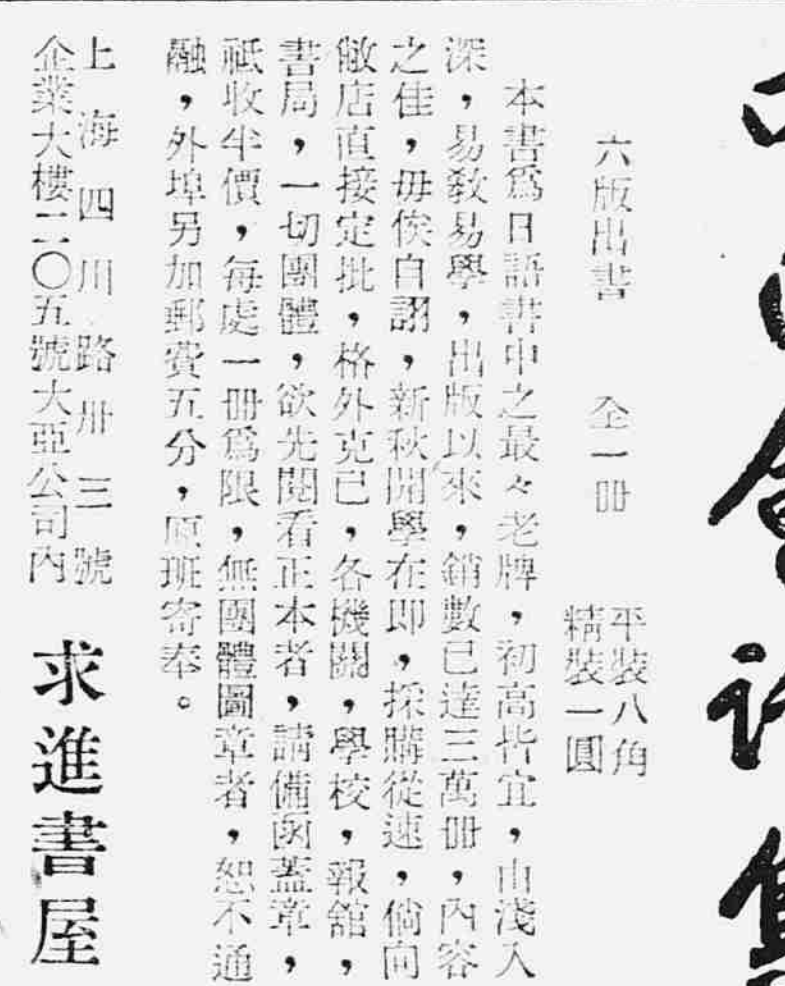 六版出書　全一冊　平裝八角
精裝一圓
本書爲日語書中之最々老牌，初高皆宜，由淺入
深，易敎易學，出版以來，銷數已達三萬冊，內容
之佳，毋俟自詡，新秋開學在即，採購從速，倘向
敝店直接定批，格外克己，各機關，學校，報舘，
書局，一切團體，欲先閱看正本者，請備函蓋章，
祗收半價，每處一冊爲限，無團體圖章者，恕不通
融，外埠另加郵費五分，原班寄奉。
上海四川路卅三號
企業大樓二〇五號大亞公司內
求進書屋